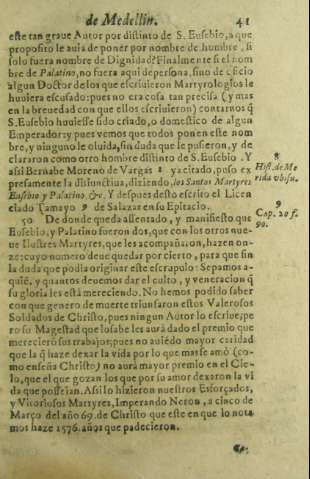 de Medellin. 41
este tan graue Autor por distinto de S. Eusebio, a que
proposito le auia de poner por nombre de humbre, si
solo fuera nombre de Dignidad? Finalmente si el nom
bre de Palatino, no fuera aqui de persona, sino de oficio
algun Doctor de los que escriuieron Martyrologios le
huuiera escusado: pues no era cosa tan precisa (y mas
en la breuedad con que ellos escriuieron) contarnos q̃
S. Eusebio huuiesse sido criado, o domestico de algun
Emperador: y pues vemos que todos ponen este nom
bre, y ninguno le oluida, sin duda que le pusieron, y de
clararon como otro hombre distinto de S. Eusebio. Y
assi Bernabe Moreno de Vargas 8 ya citado, puso ex
presamente la disiunctiua, diziendo, los Santos Martyres
Eusebio y Palatino, &c. Y despues desto escrito el Licen
ciado Tamayo 9 de Salazar en su Epitacio.
50 De donde queda assentado, y manifiesto que
Eusebio, y Palatino fueron dos, que con los otros nue-
ue Ilustres Martyres, que les acompañaron, hazen on-
ze: cuyo numero deue quedar por cierto, para que sin
la duda que podia originar este escrupulo: Sepamos a-
quiẽ, y quantos deuemos dar el culto, y veneracion q̃
su gloria les està mereciendo. No hemos podido saber
con que genero de muerte triunfaron estos Valerosos
Soldados de Christo, pues ningun Autor lo escriue; pe
ro su Magestad que lo sabe les aurà dado el premio que
merecierõ sus trabajos; pues no auiẽdo mayor caridad
que la q̃ haze dexar la vida por lo que mas se amò (co-
mo enseña Christo) no aurà mayor premio en el Cie-
lo, que el que gozan los que por su amor dexaron la vi
da que posseian. Assi lo hizieron nuestros Esforçados,
y Vitoriosos Martyres, Imperando Neron, a cinco de
Março del año 69. de Christo que este en que lo nota
mos haze 1576. años que padecieron.
8
Hist. de Me
rida vbi su.
9
Cap. 20 f.
90.